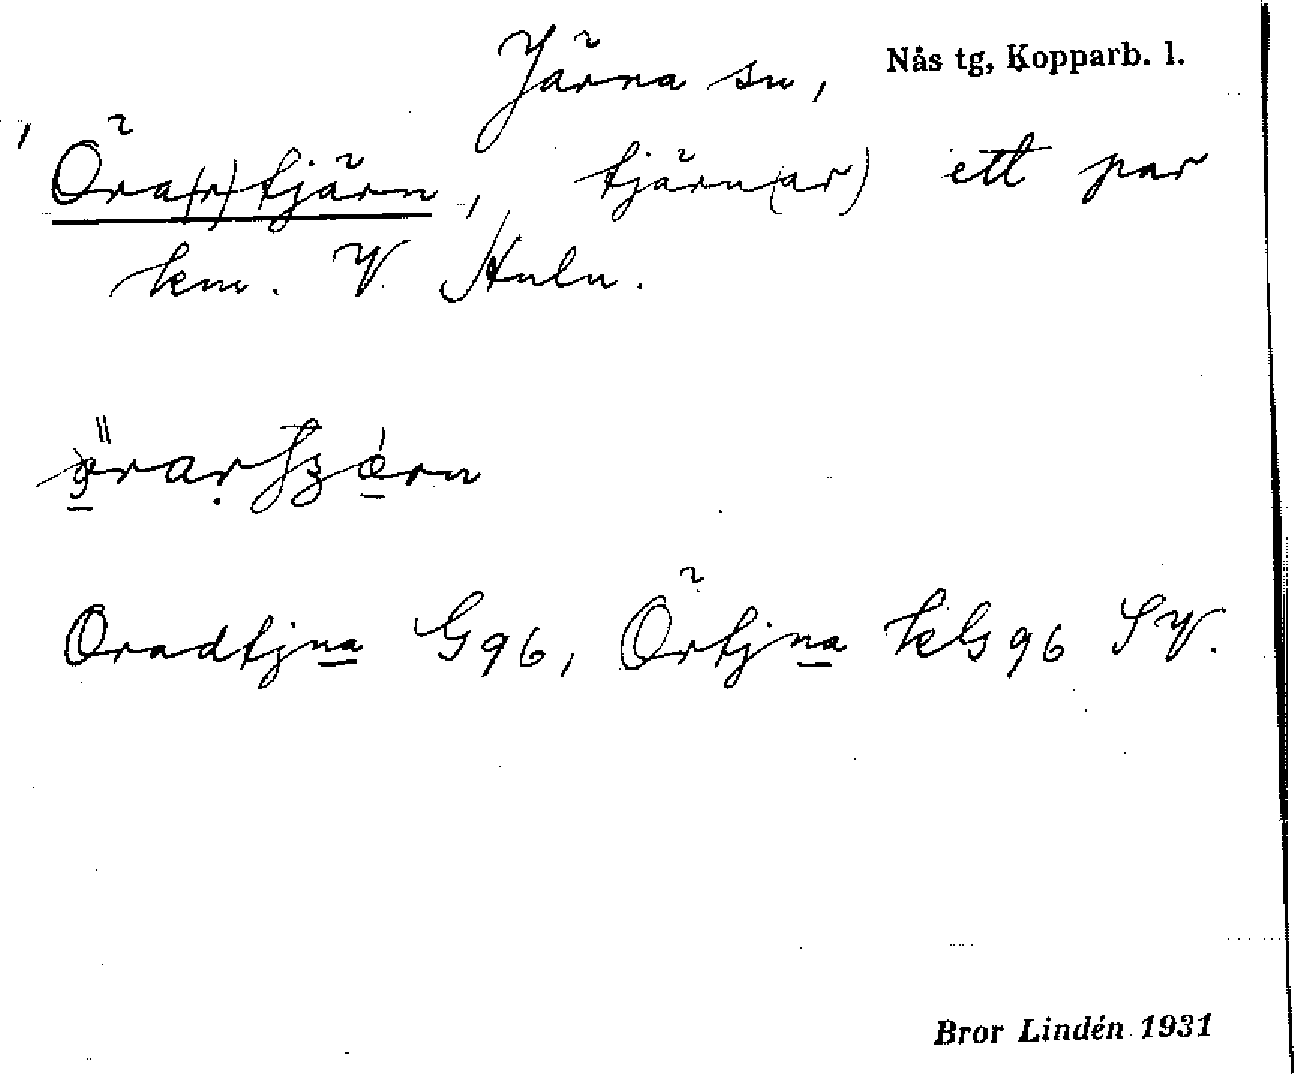 Järna sn, Nås tg, Kopparb. l.
Öra(r)tjärn, tjärn(ar) ett par
km. V. Huln.
Oradtjna G96, Örtjna kG96 SV.
Bror Lindén 1931